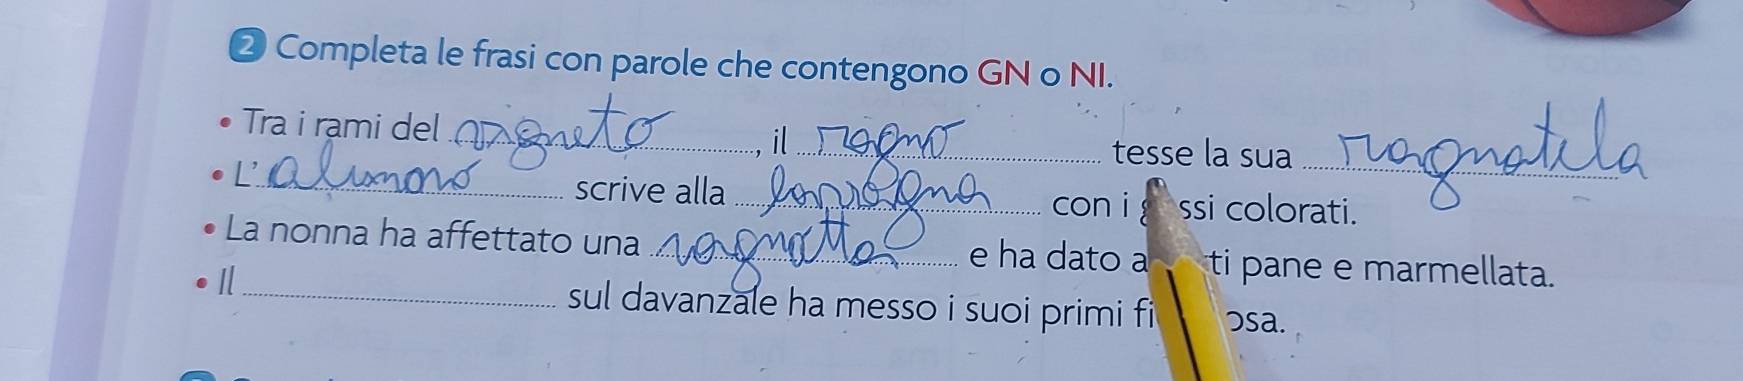 2 Completa le frasi con parole che contengono GN o NI.
• Tra i rami del, il ragno tesse la sua ragnatela
• L' alunno scrive alla lavagna con i ssi colorati.
• La nonna ha affettato una e ha dato a ti pane e marmellata.
• Il sul davanzale ha messo i suoi primi fi osa.